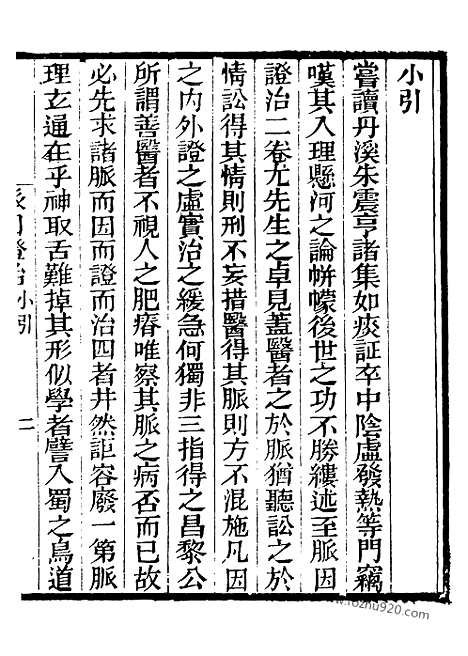 小引
嘗讀丹溪朱震亨諸集如痰証卒中陰虛發熱等門竊
嘆其入理懸河之論帡幪後世之功不勝縷述至脈因
證治二卷尤先生之卓見蓋醫者之於脈猶聽訟之於
情訟得其情則刑不妄措醫得其脈則方不混施凡因
之内外證之虛實治之緩急何獨非三指得之昌黎公
所謂善醫者不視人之肥瘠唯察其脈之病否而已故
必先求諸脈而因而證而治四者井然詎容廢一第脈
理玄通在乎神取舌難掉其形似學者譬入蜀之鳥道
脈因證治小引
二
www.fozhu920.com